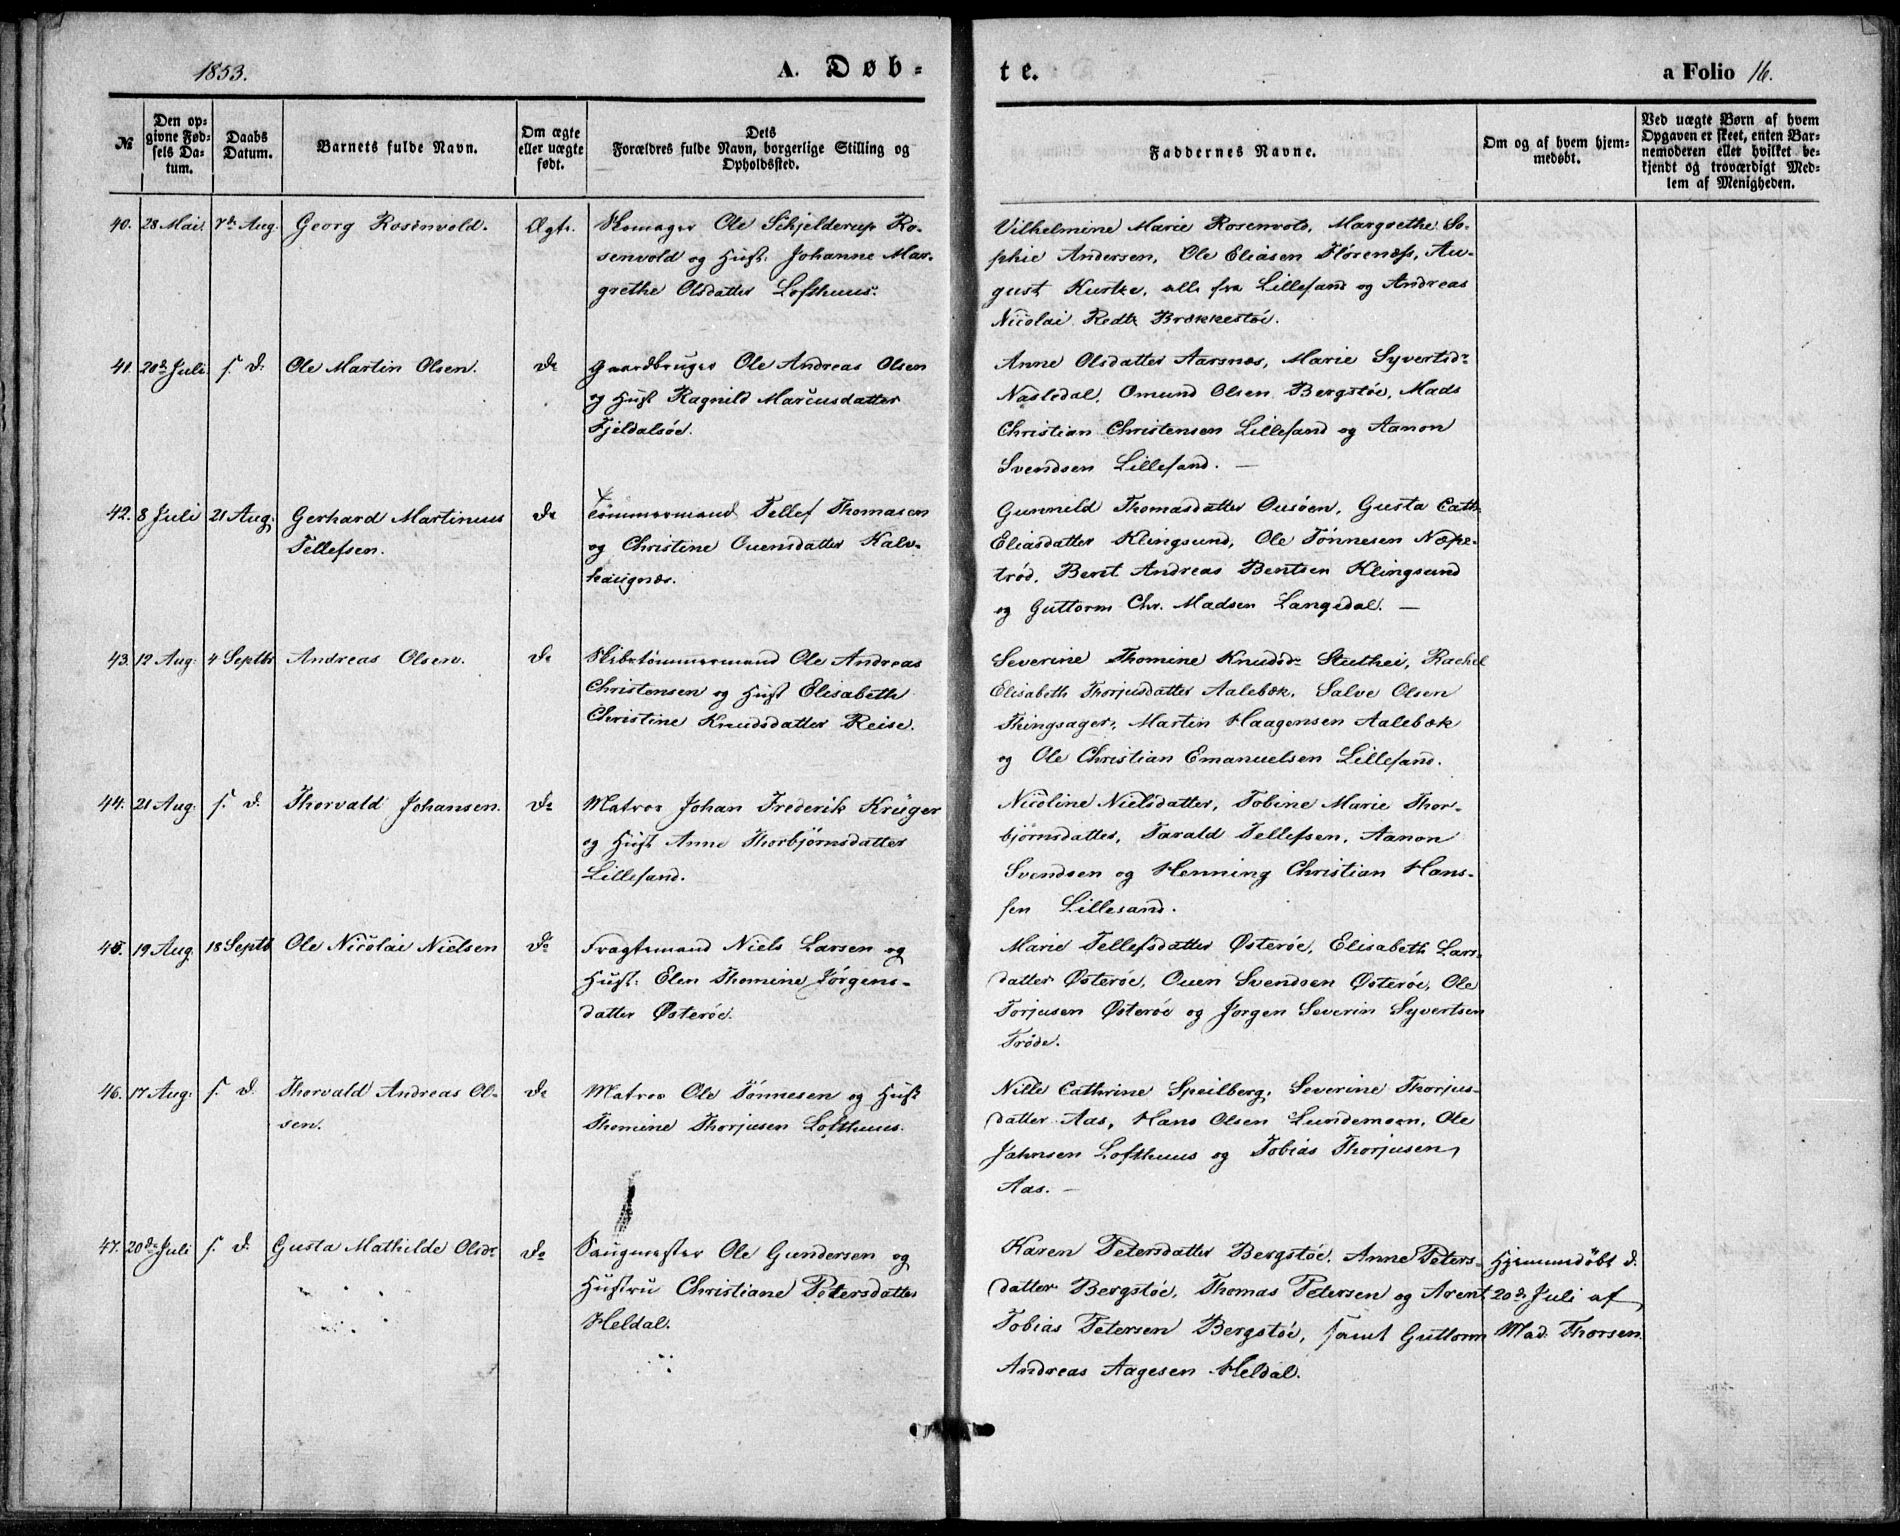 1853.
A. Døb=
te.
a Folio 16.
№
Den op=
givne Fød=
sels Da=
tum.
Daabs
Datum.
Barnets fulde Navn.
Om ægte
eller uægte
født.
Dets
Forældres fulde Navn, borgerlige Stilling og
Opholdssted.
Faddernes Navne.
Om og af hvem hjem=
medøbt.
Ved uægte Børn af hvem
Opgaven er skeet, enten Bar=
nemoderen eller hvilket be=
kjendt og troværdigt Med=
lem af Menigheden.
40. 28 Mai. 7de Aug. Georg Rosenvold. Ægte.
Skomager Ole Schjelderup Ro-
senvold og Hust: Johanne Mar-
grethe Olsdatter Lofthuus.
Vilhelmine Marie Rosenvold, Margrethe So-
phie Andersen, Ole Eliasen Flørenæs, Au-
gust Kurtze, alle fra Lillesand og Andreas
Nicolai Redtz Brækkestøe.
41. 20de Juli s. D. Ole Martin Olsen. Do
Gaardbruger Ole Andreas Olsen
og Hust Ragnild Marcusdatter
Fjeldalsøe.
Anne Olsdatter Aarsnæs, Marie Syvertsdr
Nasledal, Omund Olsen Bergstøe, Mads
Christian Christensen Lillesand og Aanon
Svendsen Lillesand. —
42. 8 Juli 21 Aug. Gerhard Martinius
Tellefsen.
Do
Tømmermand Tellef Thomasen
og Christine Ouensdatter Kalv-
haugnæs.
Gunnild Thomasdatter Ousøen, Gusta Cath.
Eliasdatter Klingsund, Ole Tønnesen Næpe-
trød, Bernt Andreas Bentsen Klingsund
og Guttorm Chr. Madsen Langedal. —
43. 12 Aug. 4 Septbr Andreas Olsen. Do
Skibstømmermand Ole Andreas
Christensen og Hust Elisabeth
Christine Knudsdatter Reise.
Severine Thomine Knudsdr Stuthei, Rachel
Elisabeth Thorjusdatter Aalebæk, Salve Olsen
Thingsager, Martin Haagensen Aalebæk
og Ole Christian Emanuelsen Lillesand.
44. 21 Aug. s. D. Thorvald Johansen. Do
Matros Johan Frederik Krüger
og Hust Anne Thorbjørnsdatter
Lillesand.
Nicoline Nielsdatter, Tobine Marie Thor-
bjørnsdatter, Tarald Tellefsen, Aanon
Svendsen og Henning Christian Han-
sen Lillesand.
45. 19 Aug. 18 Septb Ole Nicolai Nielsen Do
Fragtemand Niels Larsen og
Hust: Elen Thomine Jørgens-
datter Østerøe.
Marie Tellefsdatter Østerøe, Elisabeth Lars-
datter Østerøe, Ouen Svendsen Østerøe, Ole
Torjusen Østerøe og Jørgen Severin Syvertsen
Trøde.
46. 17 Aug. s. D. Thorvald Andreas Ol-
sen.
Do
Matros Ole Tønnesen og Hust
Thomine Thorjusen Lofthuus.
Nille Cathrine Speilberg, Severine Thorjus-
datter Aas, Hans Olsen Lundemoen, Ole
Jahnsen Lofthuus og Tobias Thorjusen
Aas. —
47. 20de Juli s. D. Gusta Mathilde Olsdr Do
Saugmester Ole Gundersen og
Hustru Christiane Petersdatter
Heldal.
Karen Petersdatter Bergstøe, Anne Peters-
datter Bergstøe, Thomas Petersen og Arent
Tobias Petersen Bergstøe, samt Guttorm
Andreas Aagesen Heldal.
Hjemmedøbt d.
20de Juli af
Mad. Thorsen.